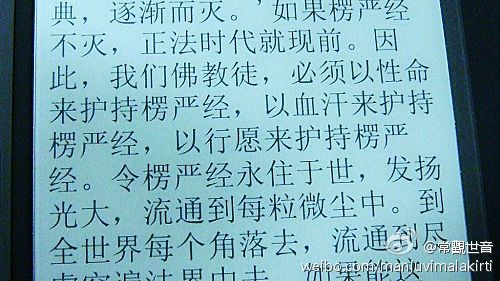 典，逐渐而灭。’如果楞严经
不灭，正法时代就现前。因
此，我们佛教徒，必须以性命
来护持楞严经，以血汗来护持
楞严经，以行愿来护持楞严
经。令楞严经永住于世，发扬
光大，流通到每粒微尘中。到
全世界每个角落去，流通到尽
虚空遍法界中去。如果能这
@常觀世音
weibo.com/manjuvimalakirti